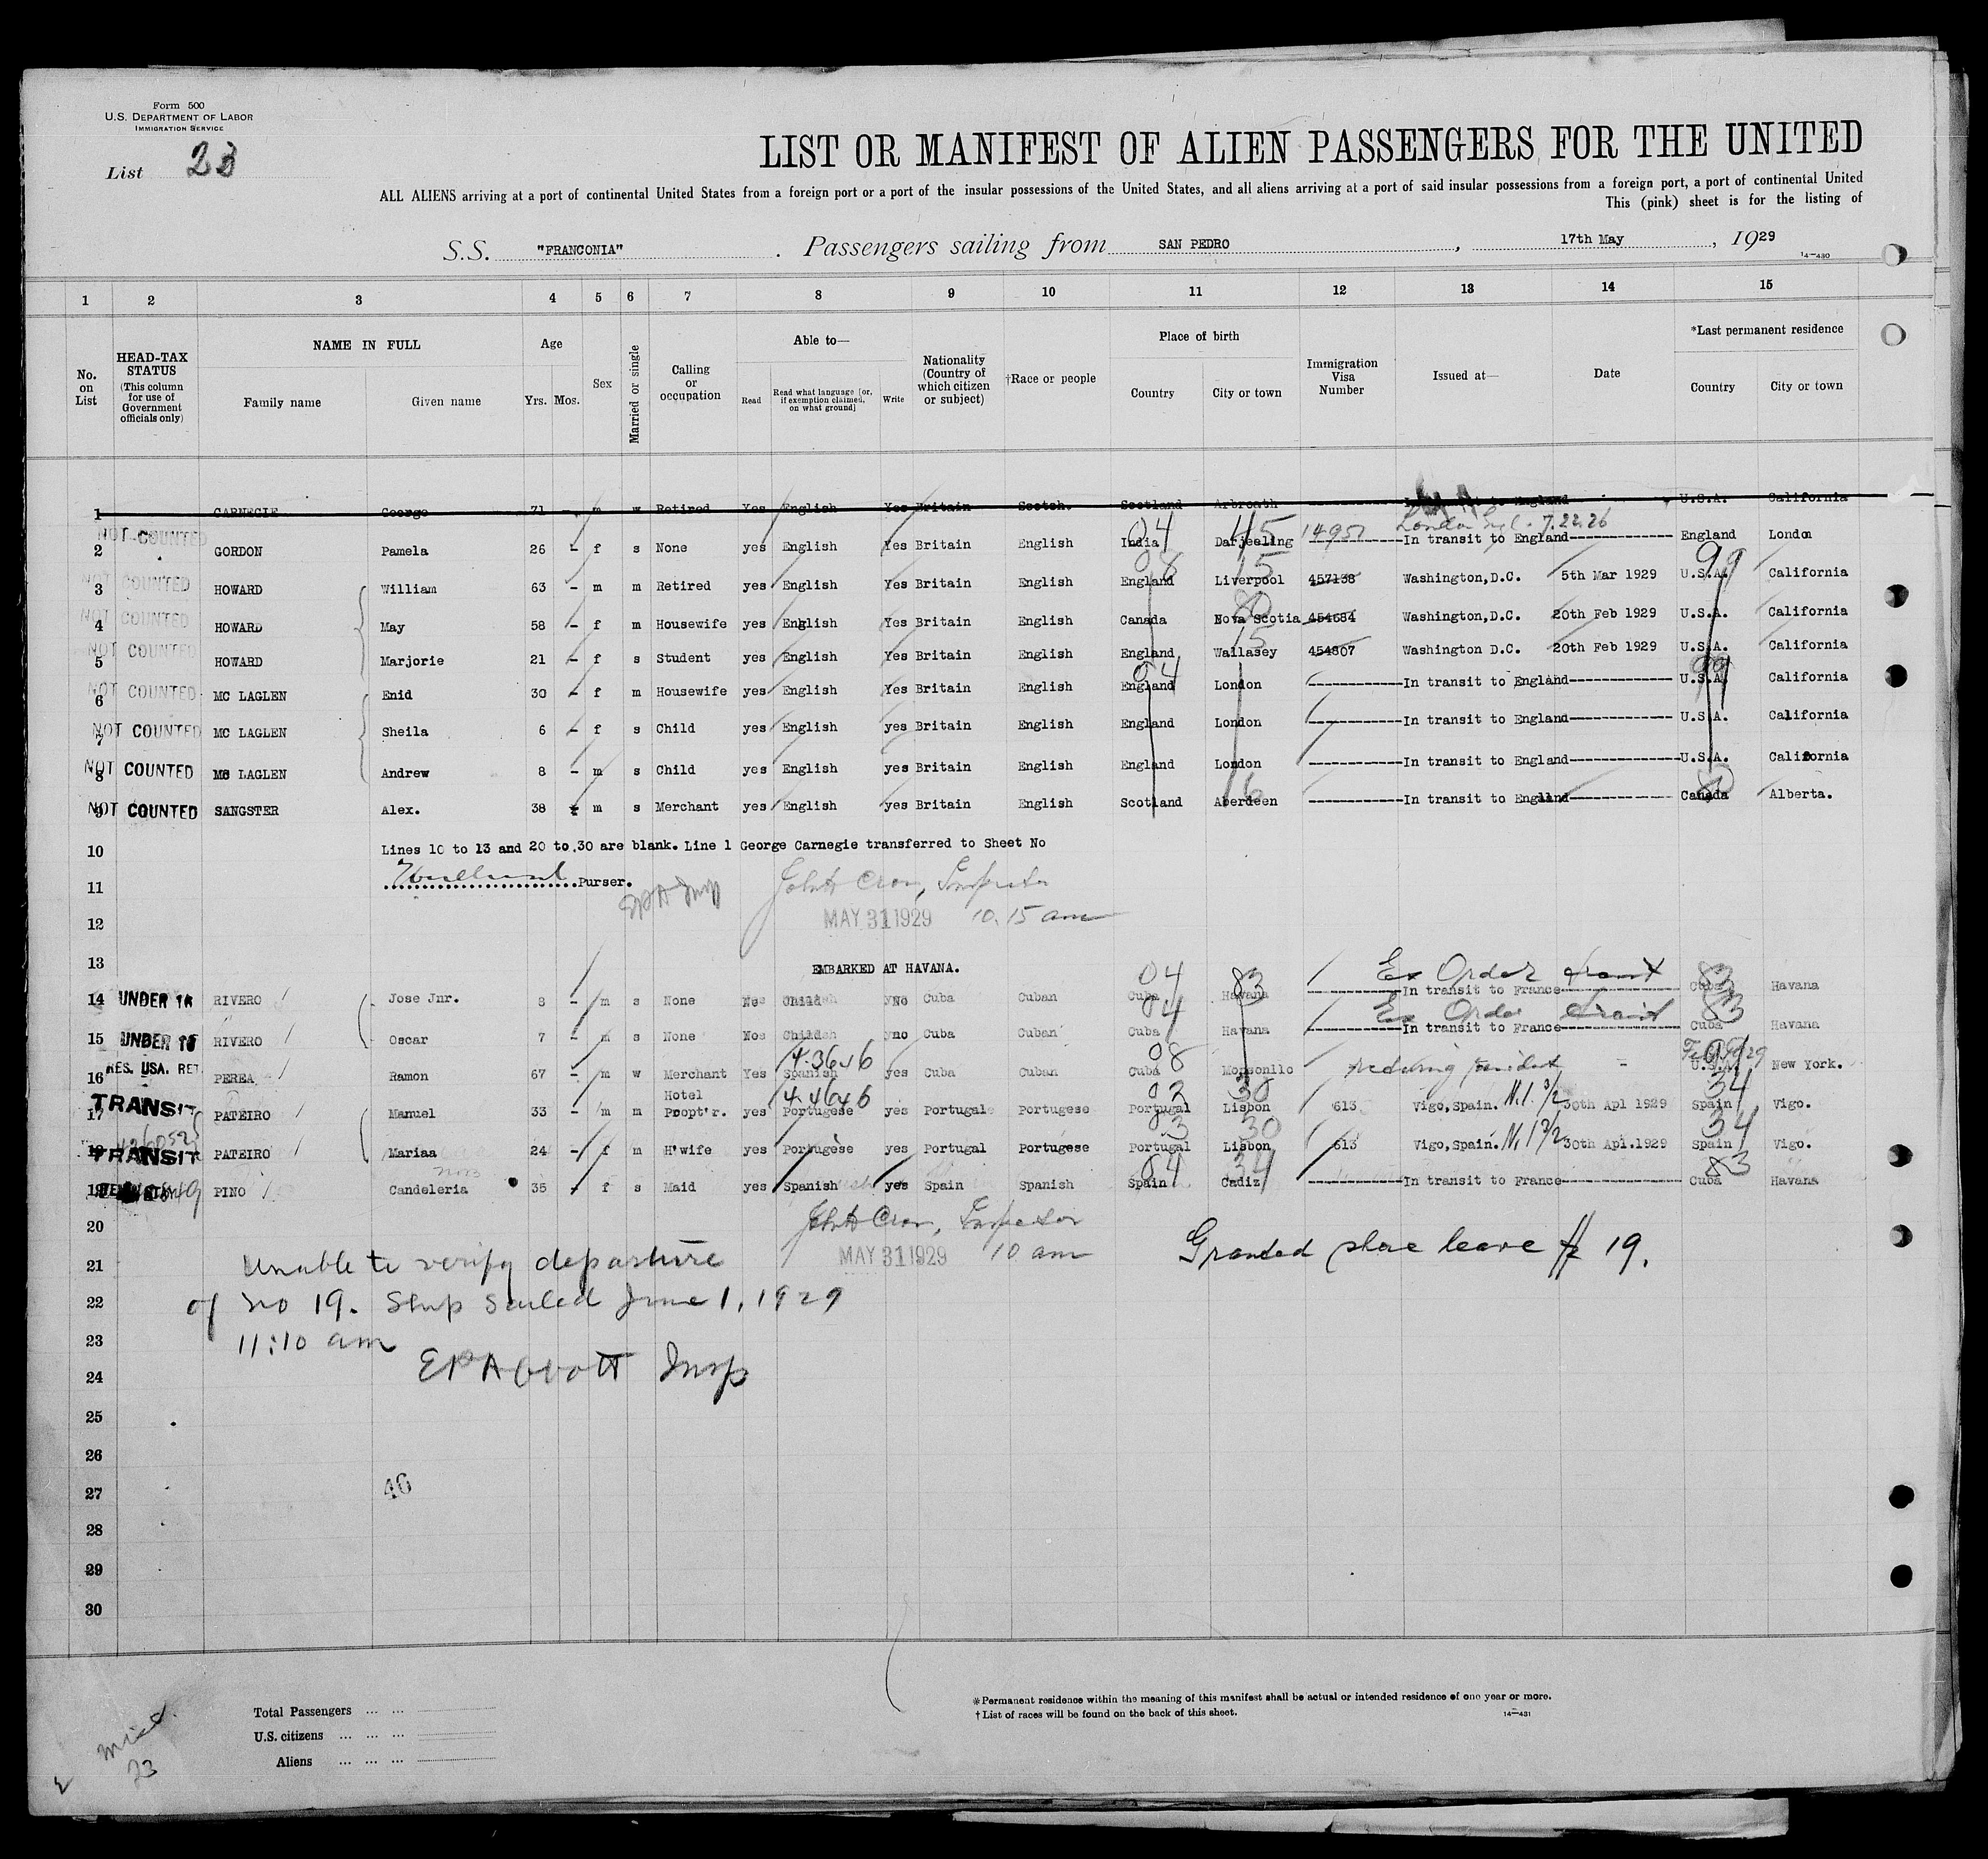 Form 500
U.S. DEPARTMENT OF LABOR
IMMIGRATION SERVICE
List 23
LIST OR MANIFEST OF ALIEN PASSENGERS FOR THE UNITED
ALL ALIENS arriving at a port of continental United States from a foreign port or a port of the insular possessions of the United States, and all aliens arriving at a port of said insular possessions from a foreign port, a port of continental United
This (pink) sheet is for the listing of
S.S. "FRANCONIA" . Passengers sailing from SAN PEDRO , 17th May , 1929
14-430
1 2 3 4 5 6 7 8 9 10 11 12 13 14 15
No. on List
HEAD-TAX STATUS (This column for use of Government officials only)
NAME IN FULL
Family name Given name
Age
Yrs. Mos.
Sex
Married or single
Calling or occupation
Able to—
Read Read what language [or, if exemption claimed, on what ground] Write
Nationality (Country of which citizen or subject)
†Race or people
Place of birth
Country City or town
Immigration Visa Number
Issued at—
Date
*Last permanent residence
Country City or town
1 CARNEGIE George 71 - m w Retired Yes English Yes Britain Scotch. Scotland Arbroath In transit to England U.S.A. California
04 15 14957 London 7.22.26
2 NOT COUNTED GORDON Pamela 26 - f s None yes English Yes Britain English India Darjeeling In transit to England England London
08 15 99
3 NOT COUNTED HOWARD William 63 - m m Retired yes English Yes Britain English England Liverpool 457138 Washington,D.C. 5th Mar 1929 U.S.A. California
80
4 NOT COUNTED HOWARD May 58 - f m Housewife yes English Yes Britain English Canada Nova Scotia 454684 Washington,D.C. 20th Feb 1929 U.S.A. California
15
5 NOT COUNTED HOWARD Marjorie 21 - f s Student yes English Yes Britain English England Wallasey 454807 Washington D.C. 20th Feb 1929 U.S.A. California
04 99
6 NOT COUNTED MC LAGLEN Enid 30 - f m Housewife yes English Yes Britain English England London In transit to England U.S.A. California
7 NOT COUNTED MC LAGLEN Sheila 6 - f s Child yes English yes Britain English England London In transit to England U.S.A. California
8 NOT COUNTED MC LAGLEN Andrew 8 - m s Child yes English yes Britain English England London In transit to England U.S.A. California
16 80
9 NOT COUNTED SANGSTER Alex. 38 - m s Merchant yes English yes Britain English Scotland Aberdeen In transit to England Canada Alberta.
10 Lines 10 to 13 and 20 to 30 are blank. Line 1 George Carnegie transferred to Sheet No
11 Purser. John Cron, Inspector
12 MAY 31 1929 10.15 am
13 EMBARKED AT HAVANA.
04 83 Ex Order transit 83
14 UNDER 16 RIVERO Jose Jnr. 8 - m s None No Child No Cuba Cuban Cuba Havana In transit to France Cuba Havana
04 Ex Order transit 83
15 UNDER 16 RIVERO Oscar 7 - m s None No Child no Cuba Cuban Cuba Havana In transit to France Cuba Havana
4.3646 08 99
16 RES. USA. RET. PEREA Ramon 67 - m w Merchant Yes Spanish yes Cuba Cuban Cuba U.S.A. New York.
4.4646 02 30 34
17 TRANSIT PATEIRO Manuel 33 - m m Hotel Propt'r. yes Portugese yes Portugal Portugese Portugal Lisbon 613 Vigo,Spain. 30th Apl 1929 Spain Vigo.
30 34
18 TRANSIT PATEIRO Mariaa 24 - f m H'wife yes Portugèse yes Portugal Portugese Portugal Lisbon 613 Vigo,Spain. 30th Apl.1929 Spain Vigo.
04 34 83
19 PINO Candeleria 35 - f s Maid yes Spanish yes Spain Spanish Spain Cadiz In transit to France Cuba Havana
20 John Cron, Inspector
21 Unable to verify departure MAY 31 1929 10 am Granted shore leave # 19.
22 of no 19. Ship Sailed June 1, 1929
23 11:10 am
24 E P Abbott Insp
25
26
27 40
28
29
30
Total Passengers
U.S. citizens
Aliens
*Permanent residence within the meaning of this manifest shall be actual or intended residence of one year or more.
†List of races will be found on the back of this sheet.
14-431
23